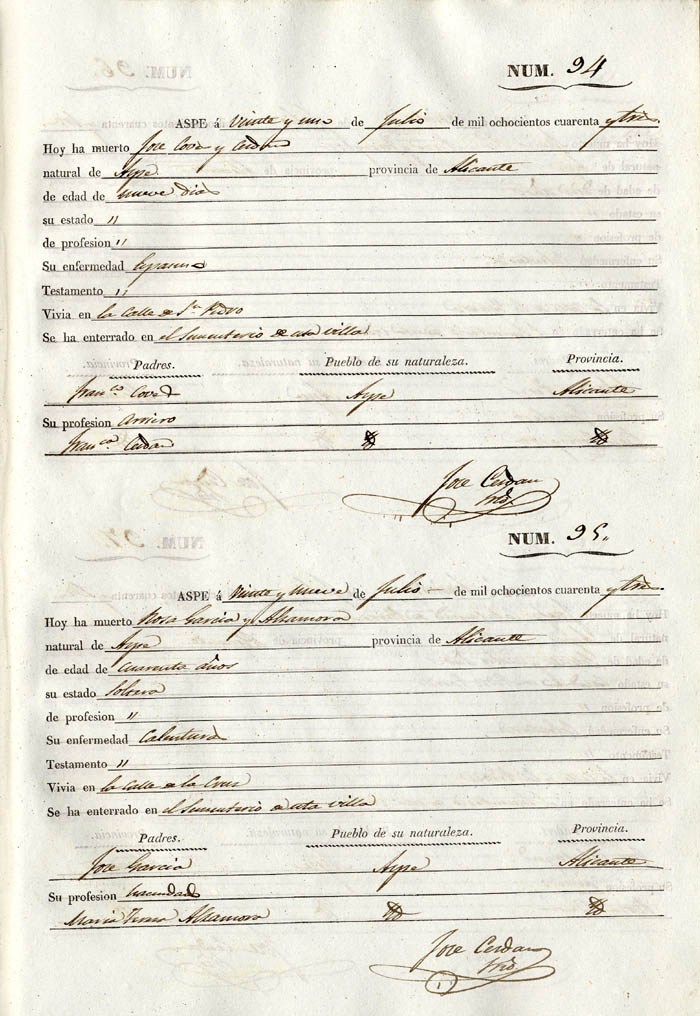 NUM. 94
ASPE á veinte y uno de Julio de mil ochocientos cuarenta y tres
Hoy ha muerto Jose Cova y Cerdan
natural de Aspe provincia de Alicante
de edad de nueve dias
su estado "
de profesion "
Su enfermedad
Testamento "
Vivia en la Calle de Sn Pedro
Se ha enterrado en el Sementerio de esta villa
Padres. Pueblo de su naturaleza. Provincia.
Franco. Cova Aspe Alicante
Su profesion Arriero
Franca. Cerdan
Jose Cerdan
NUM. 95.
ASPE á veinte y nueve de Julio de mil ochocientos cuarenta y tres
Hoy ha muerto Rosa Garcia y Alhamora
natural de Aspe provincia de Alicante
de edad de cuarenta años
su estado Soltera
de profesion "
Su enfermedad Calentura
Testamento "
Vivia en la Calle de la Cruz
Se ha enterrado en el Sementerio de esta villa
Padres. Pueblo de su naturaleza. Provincia.
Jose Garcia Aspe Alicante
Su profesion hacendado
Maria Teresa Alhamora
Jose Cerdan